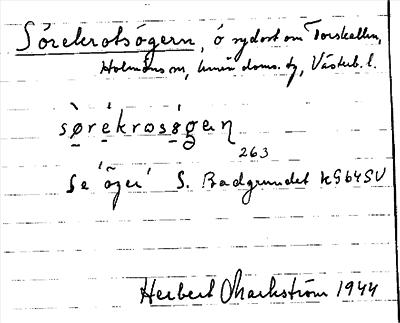 Sörekrotsögern, ö sydost om Torskallen,
Holmöns sn, Umeå doms. tg, Västerb. l.
sørékrosøgen
263
Se 'öger' S. Badgrundet KGb4SV
Herbert Markström 1944